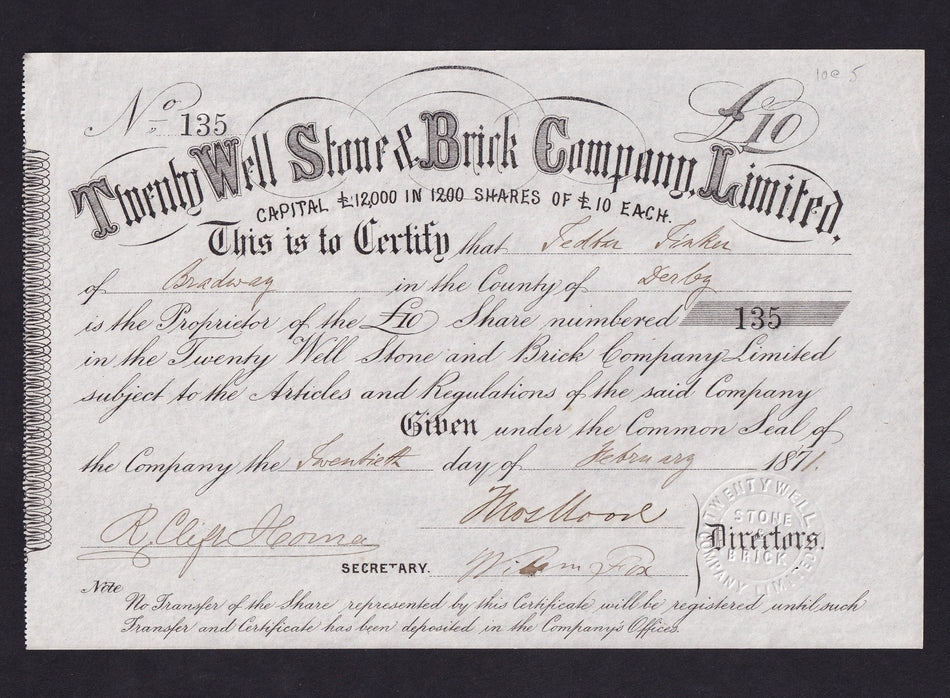 10@ 5
No 135
£10
Twenty Well Stone & Brick Company, Limited.
CAPITAL £12,000 IN 1200 SHARES OF £10 EACH.
This is to Certify that Tinker
of Bradway in the County of Derby
is the Proprietor of the £10 Share numbered 135
in the Twenty Well Stone and Brick Company Limited
subject to the Articles and Regulations of the said Company
Given under the Common Seal of
the Company the Twentieth day of February 1871.
Thos Wood
R. Clifft Horne
Directors.
SECRETARY. William Fox
TWENTY WELL STONE & BRICK COMPANY LIMITED
Note
No Transfer of the Share represented by this Certificate will be registered until such
Transfer and Certificate has been deposited in the Company's Offices.